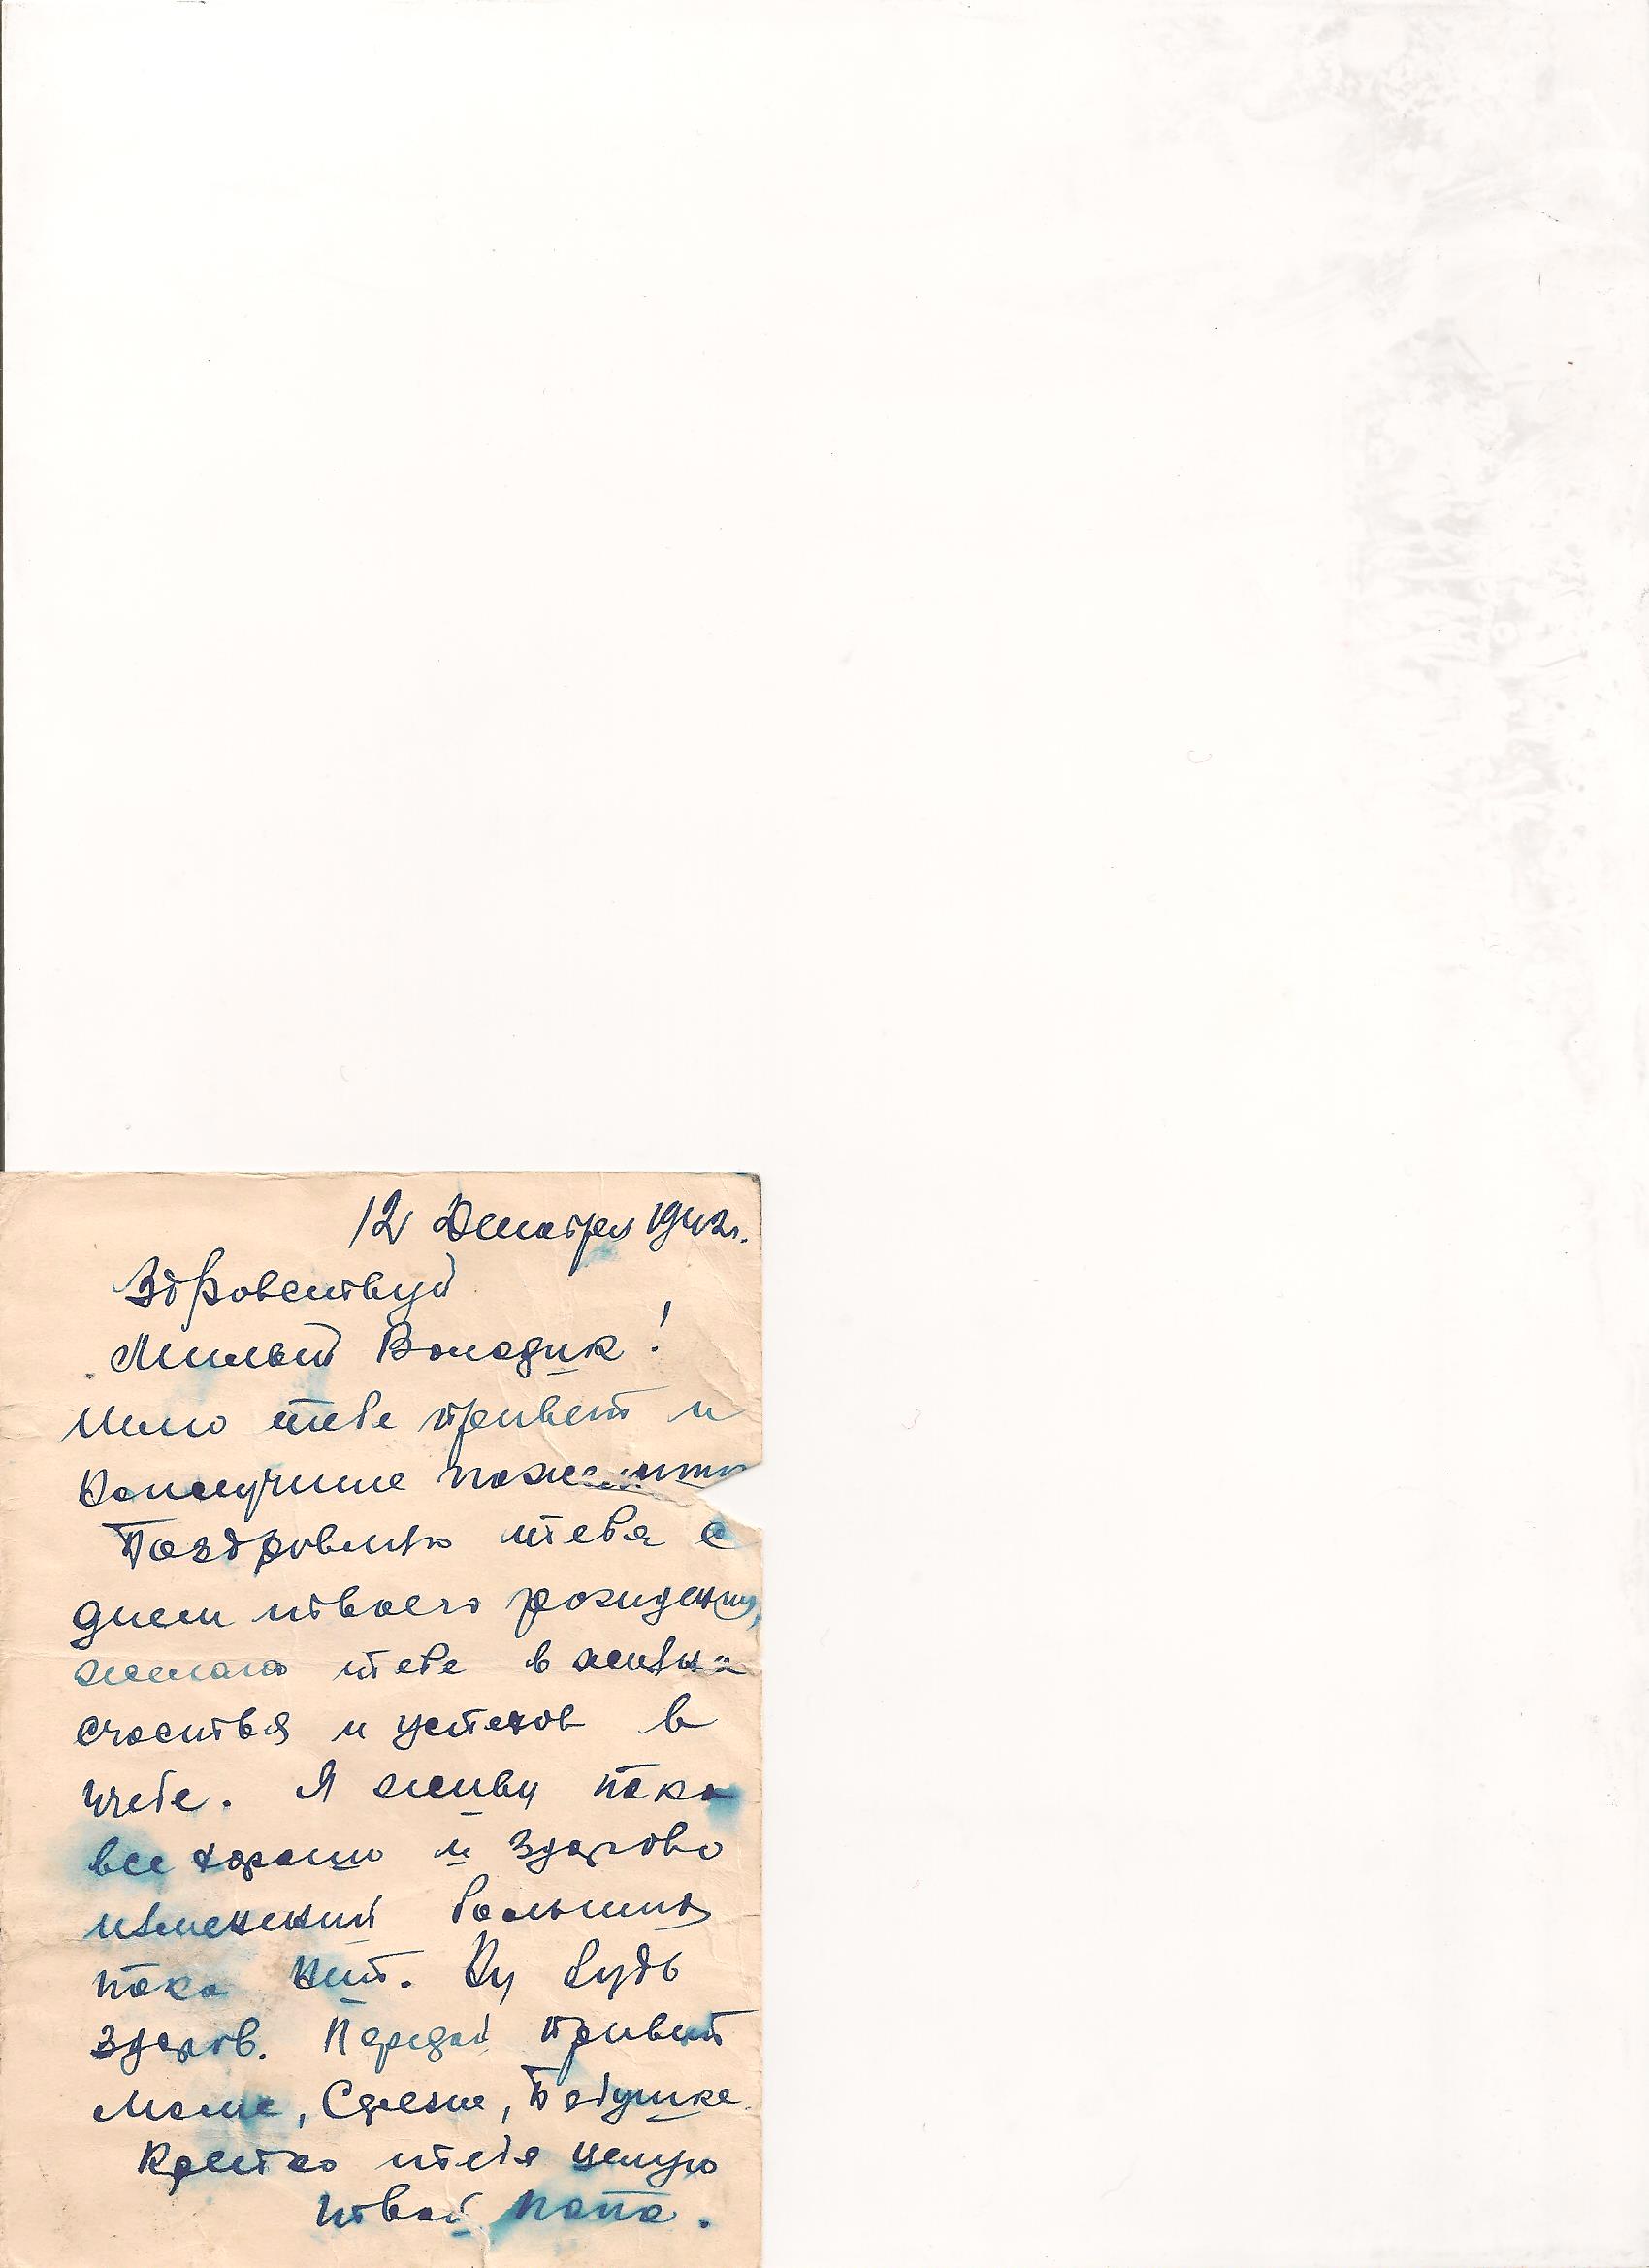 12 Декабря 1942г.
Здравствуй
Милый Володик!
Шлю тебе привет и
наилучшие
Поздровляю тебя с
днем твоего рождения,
желаю тебе в жизни
счастья и успехов в
учебе. Я живу пока
все хорошо и здорово
изменений больших
пока нет. Ну будь
здоров. Передай привет
Маме, Сереже, Бабушке.
Крепко тебя целую
твой папа.